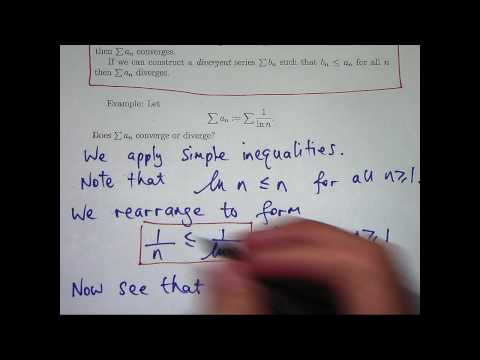 then ∑ aₙ converges.
If we can construct a divergent series ∑ bₙ such that bₙ ≤ aₙ for all n
then ∑ aₙ diverges.
Example: Let
∑ aₙ := ∑ 1/ln n.
Does ∑ aₙ converge or diverge?
We apply simple inequalities.
Note that ln n ≤ n for all n ≥ 1.
We rearrange to form
1/n ≤ 1/ln ≥ 1.
Now see that